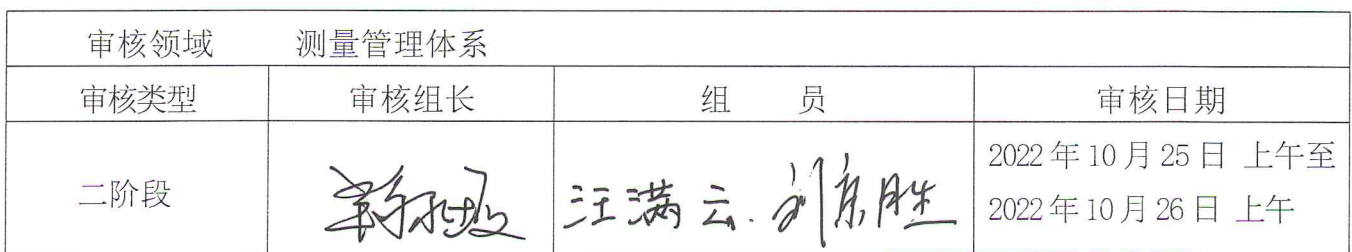 审核领域 测量管理体系
审核类型 审核组长 组 员 审核日期
二阶段 汪满云. 刘京胜 2022年10月25日 上午至
2022年10月26日 上午